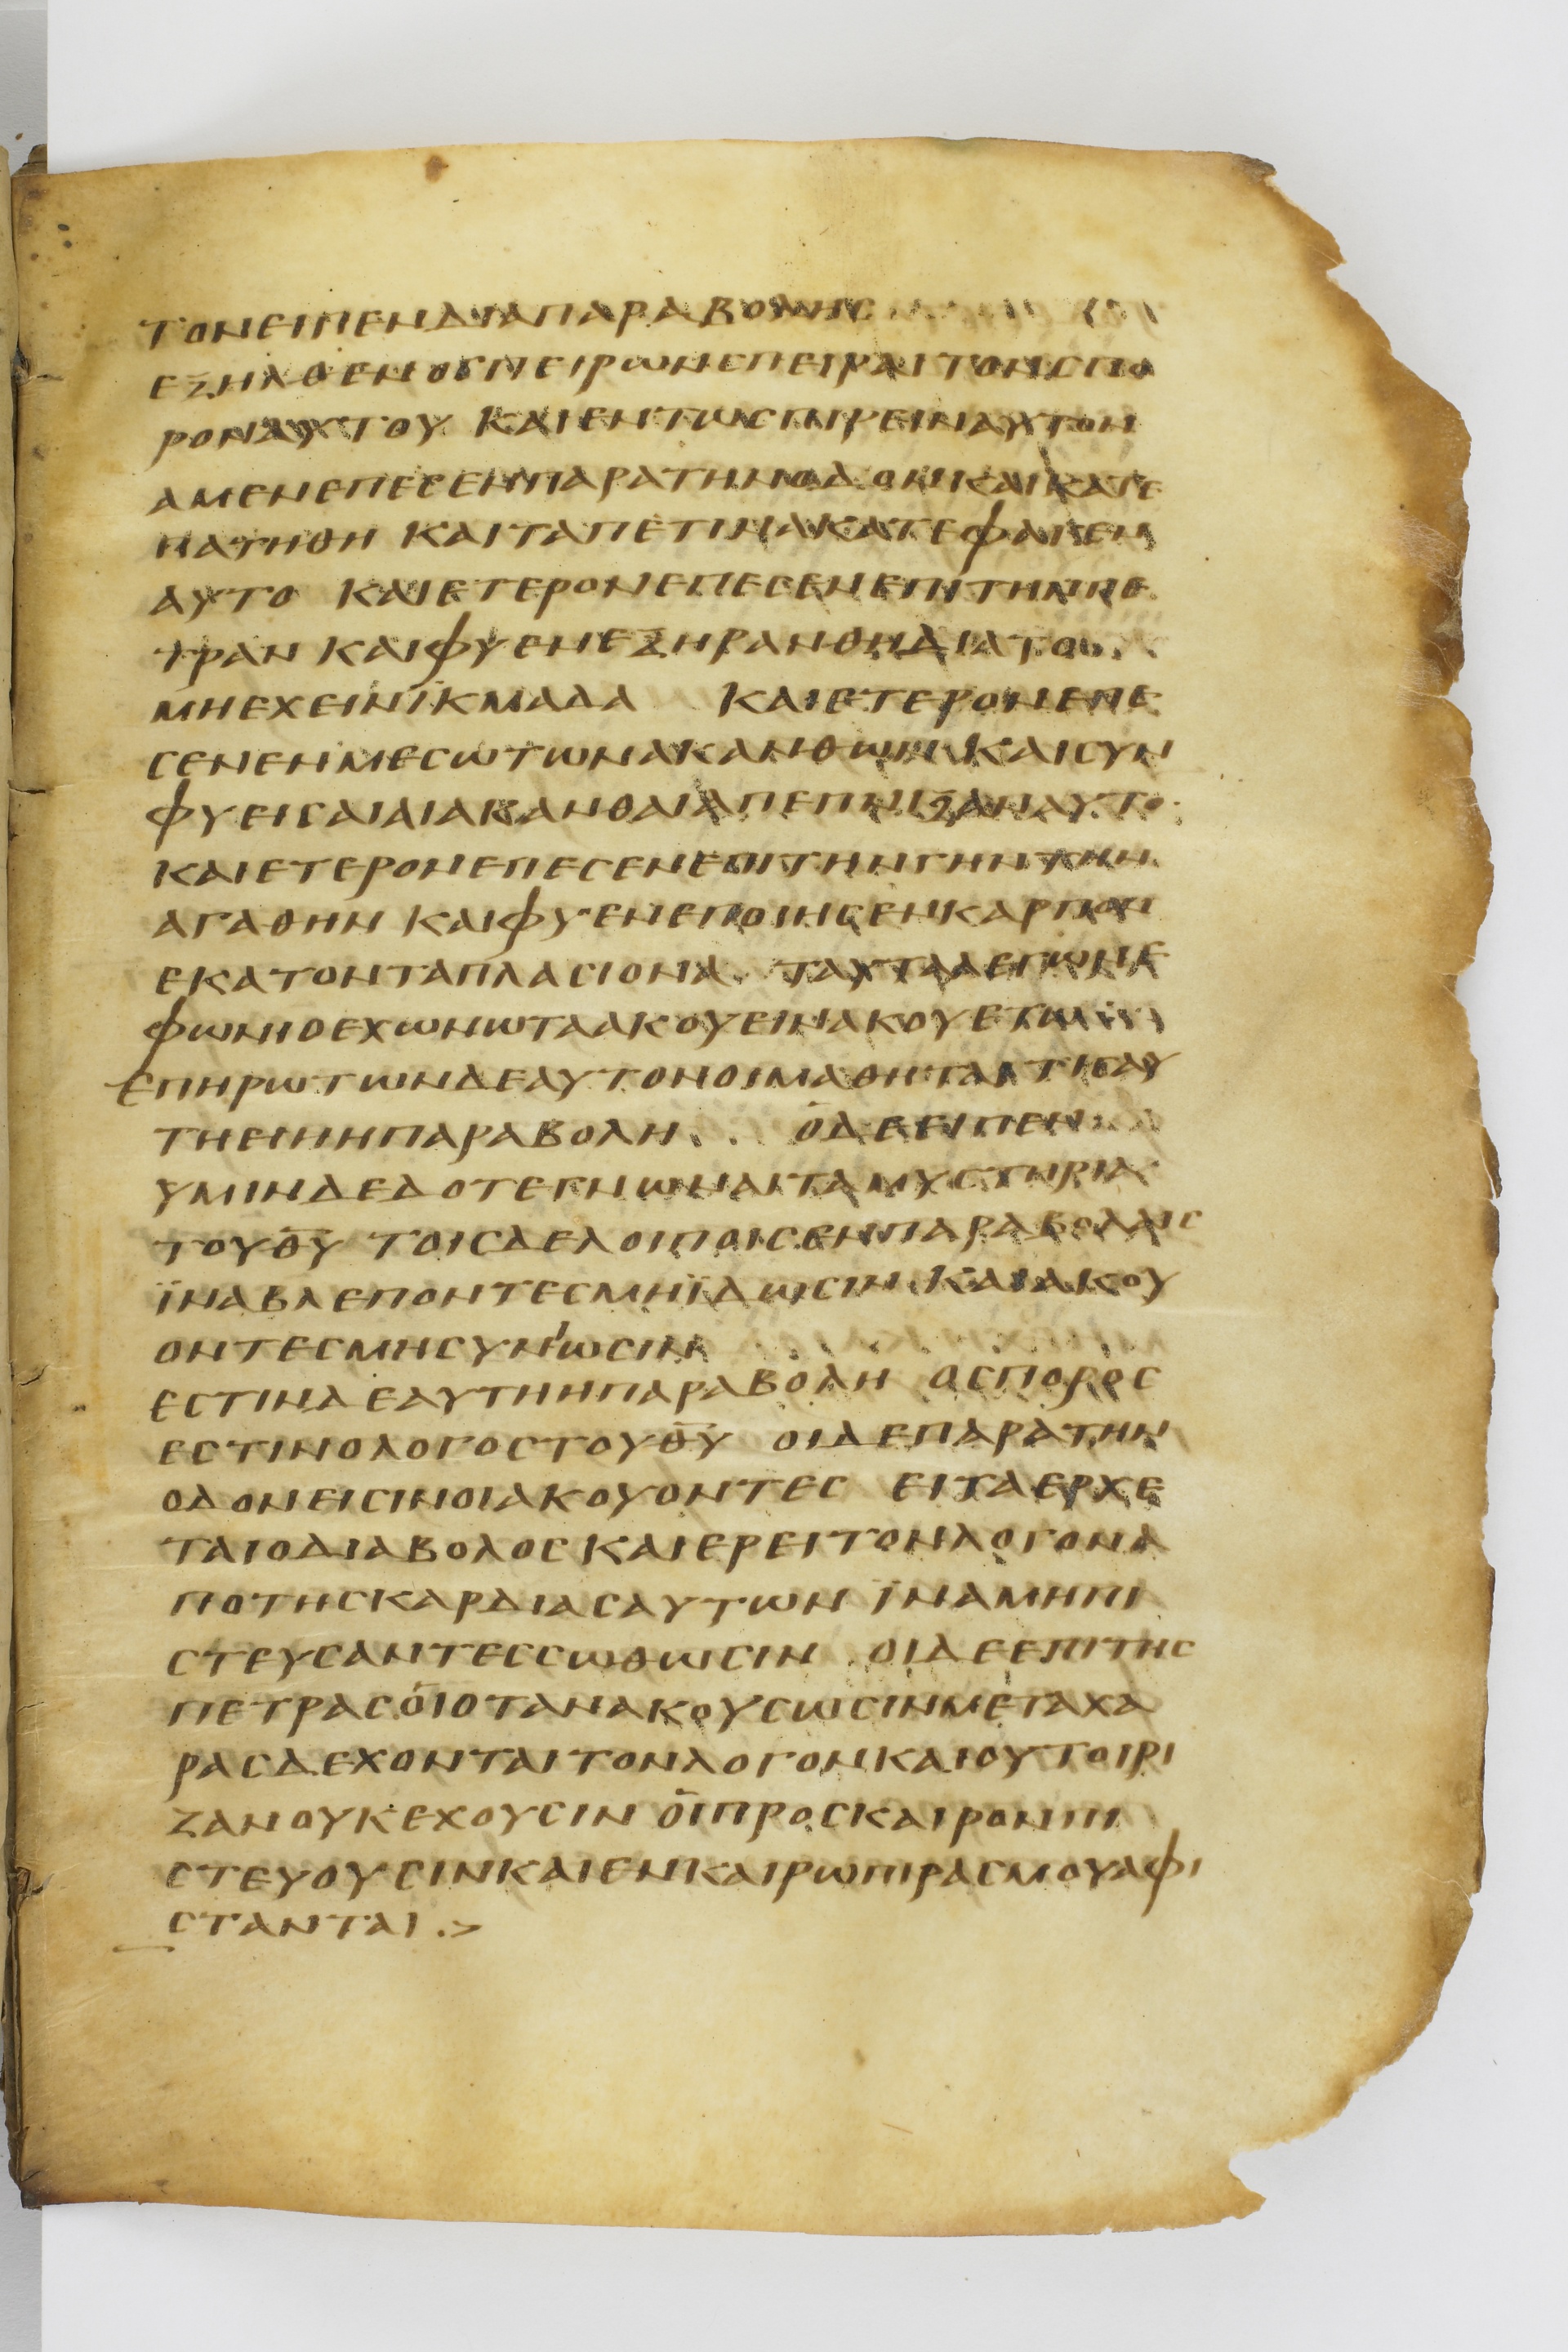 ΤΟΝΕΙΠΕΝΔΙΑΠΑΡΑΒΟΛΗϹ
ΕΞΗΛΘΕΝΟϹΠΕΙΡΩΝϹΠΕΙΡΑΙΤΟΝϹΠΟ
ΡΟΝΑΥΤΟΥ ΚΑΙΕΝΤΩϹΠΙΡΕΙΝΑΥΤΟΝ
ΑΜΕΝΕΠΕϹΕΝΠΑΡΑΤΗΝΟΔΟΝΚΑΙΚΑΤΕ
ΠΑΤΗΘΗ ΚΑΙΤΑΠΕΤΙΝΑΚΑΤΕΦΑΓΕΝ
ΑΥΤΟ ΚΑΙΕΤΕΡΟΝΕΠΕϹΕΝΕΠΙΤΗΝΠΕ
ΤΡΑΝ ΚΑΙΦΥΕΝΕΞΗΡΑΝΘΗΔΙΑΤΟ
ΜΗΕΧΕΙΝΪΚΜΑΔΑ ΚΑΙΕΤΕΡΟΝΕΠΕ
ϹΕΝΕΝΜΕϹΩΤΩΝΑΚΑΝΘΩΝ ΚΑΙϹΥΝ
ΦΥΕΙϹΑΙΑΙΑΚΑΝΘΑΙΑΠΕΠΝΙΞΑΝΑΥΤΟ
ΚΑΙΕΤΕΡΟΝΕΠΕϹΕΝΕΠΙΤΗΝΓΗΝΤΗΝ
ΑΓΑΘΗΝ ΚΑΙΦΥΕΝΕΠΟΙΗϹΕΝΚΑΡΠΟΝ
ΕΚΑΤΟΝΤΑΠΛΑϹΙΟΝΑ ΤΑΥΤΑΛΕΓΩΝΕ
ΦΩΝΙΟΕΧΩΝΩΤΑΑΚΟΥΕΙΝΑΚΟΥΕΤΩ
ΕΠΗΡΩΤΩΝΔΕΑΥΤΟΝΟΙΜΑΘΗΤΑΙΤΙϹΑΥ
ΤΗΕΙΗΗΠΑΡΑΒΟΛΗ ΟΔΕΕΙΠΕΝ
ΥΜΙΝΔΕΔΟΤΕΓΝΩΝΑΙΤΑΜΥϹΤΗΡΙΑ
ΤΟΥΘ̅Υ̅ ΤΟΙϹΔΕΛΟΙΠΟΙϹΕΝΠΑΡΑΒΟΛΑΙϹ
ΪΝΑΒΛΕΠΟΝΤΕϹΜΗΪΔΩϹΙΝ ΚΑΙΑΚΟΥ
ΟΝΤΕϹΜΗϹΥΝΙΩϹΙΝ
ΕϹΤΙΝΔΕΑΥΤΗΗΠΑΡΑΒΟΛΗ ΟϹΠΟΡΟϹ
ΕϹΤΙΝΟΛΟΓΟϹΤΟΥΘ̅Υ̅ ΟΙΔΕΠΑΡΑΤΗΝ
ΟΔΟΝΕΙϹΙΝΟΙΑΚΟΥΟΝΤΕϹ ΕΙΤΑΕΡΧΕ
ΤΑΙΟΔΙΑΒΟΛΟϹΚΑΙΕΡΕΙΤΟΝΛΟΓΟΝΑ
ΠΟΤΗϹΚΑΡΔΙΑϹΑΥΤΩΝ ΪΝΑΜΗΠΙ
ϹΤΕΥϹΑΝΤΕϹϹΩΘΩϹΙΝ ΟΙΔΕΕΠΙΤΗϹ
ΠΕΤΡΑϹΟΙΟΤΑΝΑΚΟΥϹΩϹΙΝΜΕΤΑΧΑ
ΡΑϹΔΕΧΟΝΤΑΙΤΟΝΛΟΓΟΝΚΑΙΟΥΤΟΙΡΙ
ΖΑΝΟΥΚΕΧΟΥϹΙΝ ΟΙΠΡΟϹΚΑΙΡΟΝΠΙ
ϹΤΕΥΟΥϹΙΝΚΑΙΕΝΚΑΙΡΩΠΙΡΑϹΜΟΥΑΦΙ
ϹΤΑΝΤΑΙ .>